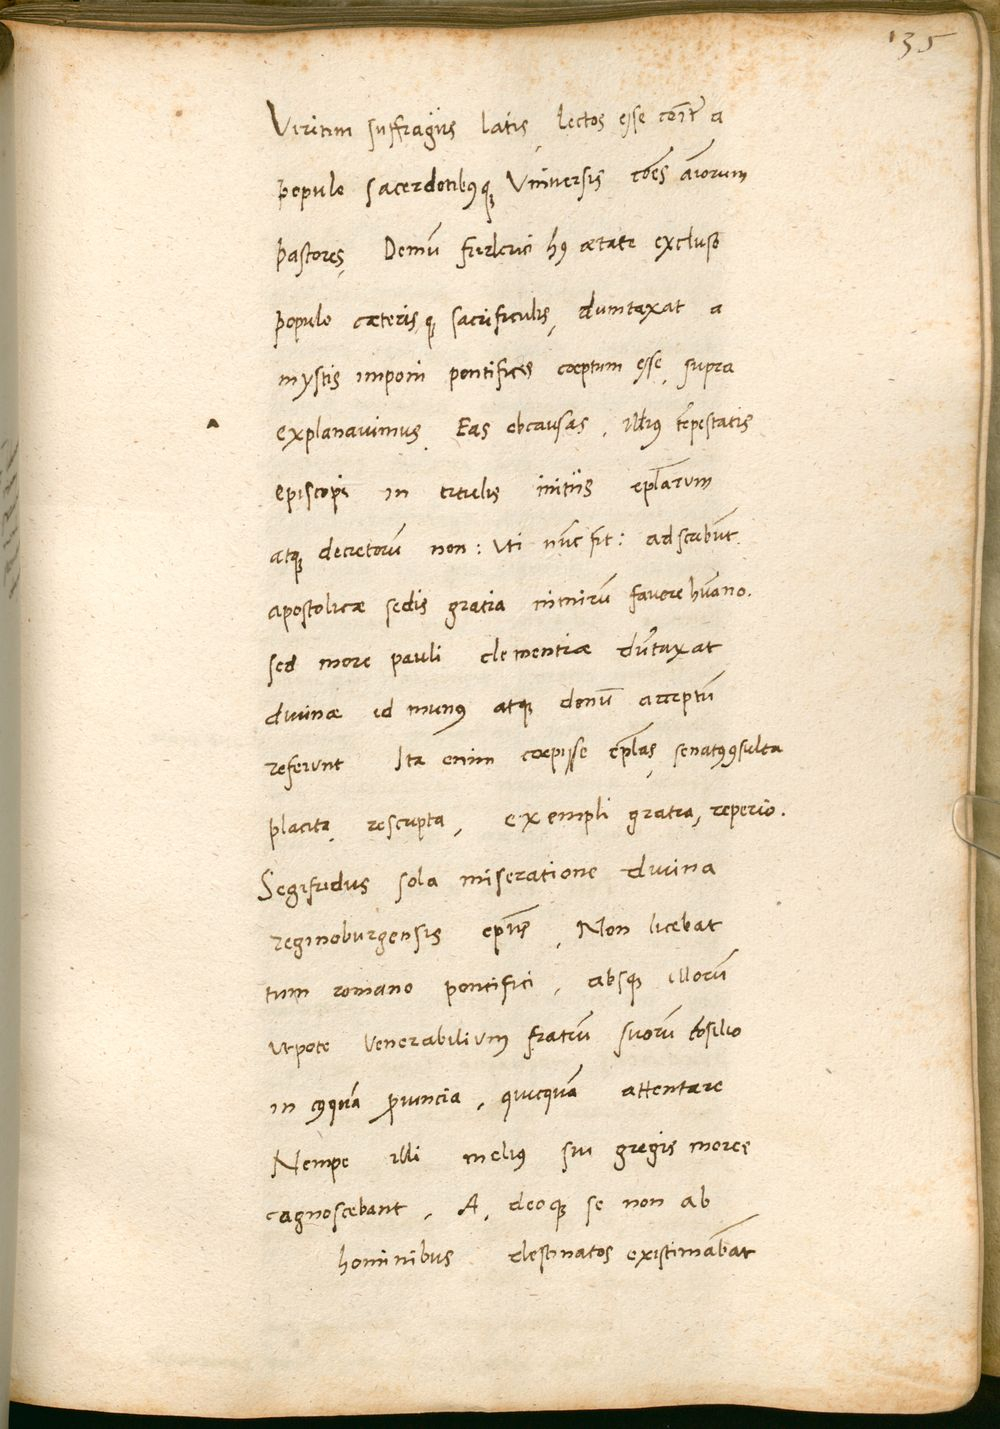 135
Viritim suffragiis latis, lectos esse cōīt̄ a
populo sacerdotibꝰqꝫ Vniuersis cōēs aīorum
pastores, Demū friderici hꝰ ætate excluso
populo cæteris qꝫ sacrificulis, dumtaxat a
mystis imponi pontifices cœptum esse, supra
explanauimus. Eas obcausas, illiꝰ tēpestatis
episcopi in titulis initiis eplārum
atqꝫ decretorū non: vti nūc fit: adscribūt
apostolicæ sedis gratia nimirū fauore hūano.
sed more pauli clementiæ dūtaxat
diuinæ id munꝰ atqꝫ donū acceptū
referunt Ita enim cœpisse eplās, senatꝰꝯsulta
placita, rescripta, exempli gratia, reperio.
Segifridus sola miseratione diuina
reginoburgensis epūs, Non licebat
tum romano pontifici, absqꝫ illorū
vtpote Venerabilium fratrū suorū cōsilio
in cꝰquā prouincia, quicquā attentare
Nempe illi meliꝰ sui gregis mores
cagnoscebant, A, deoqꝫ se non ab
hominibus destinatos existimābat